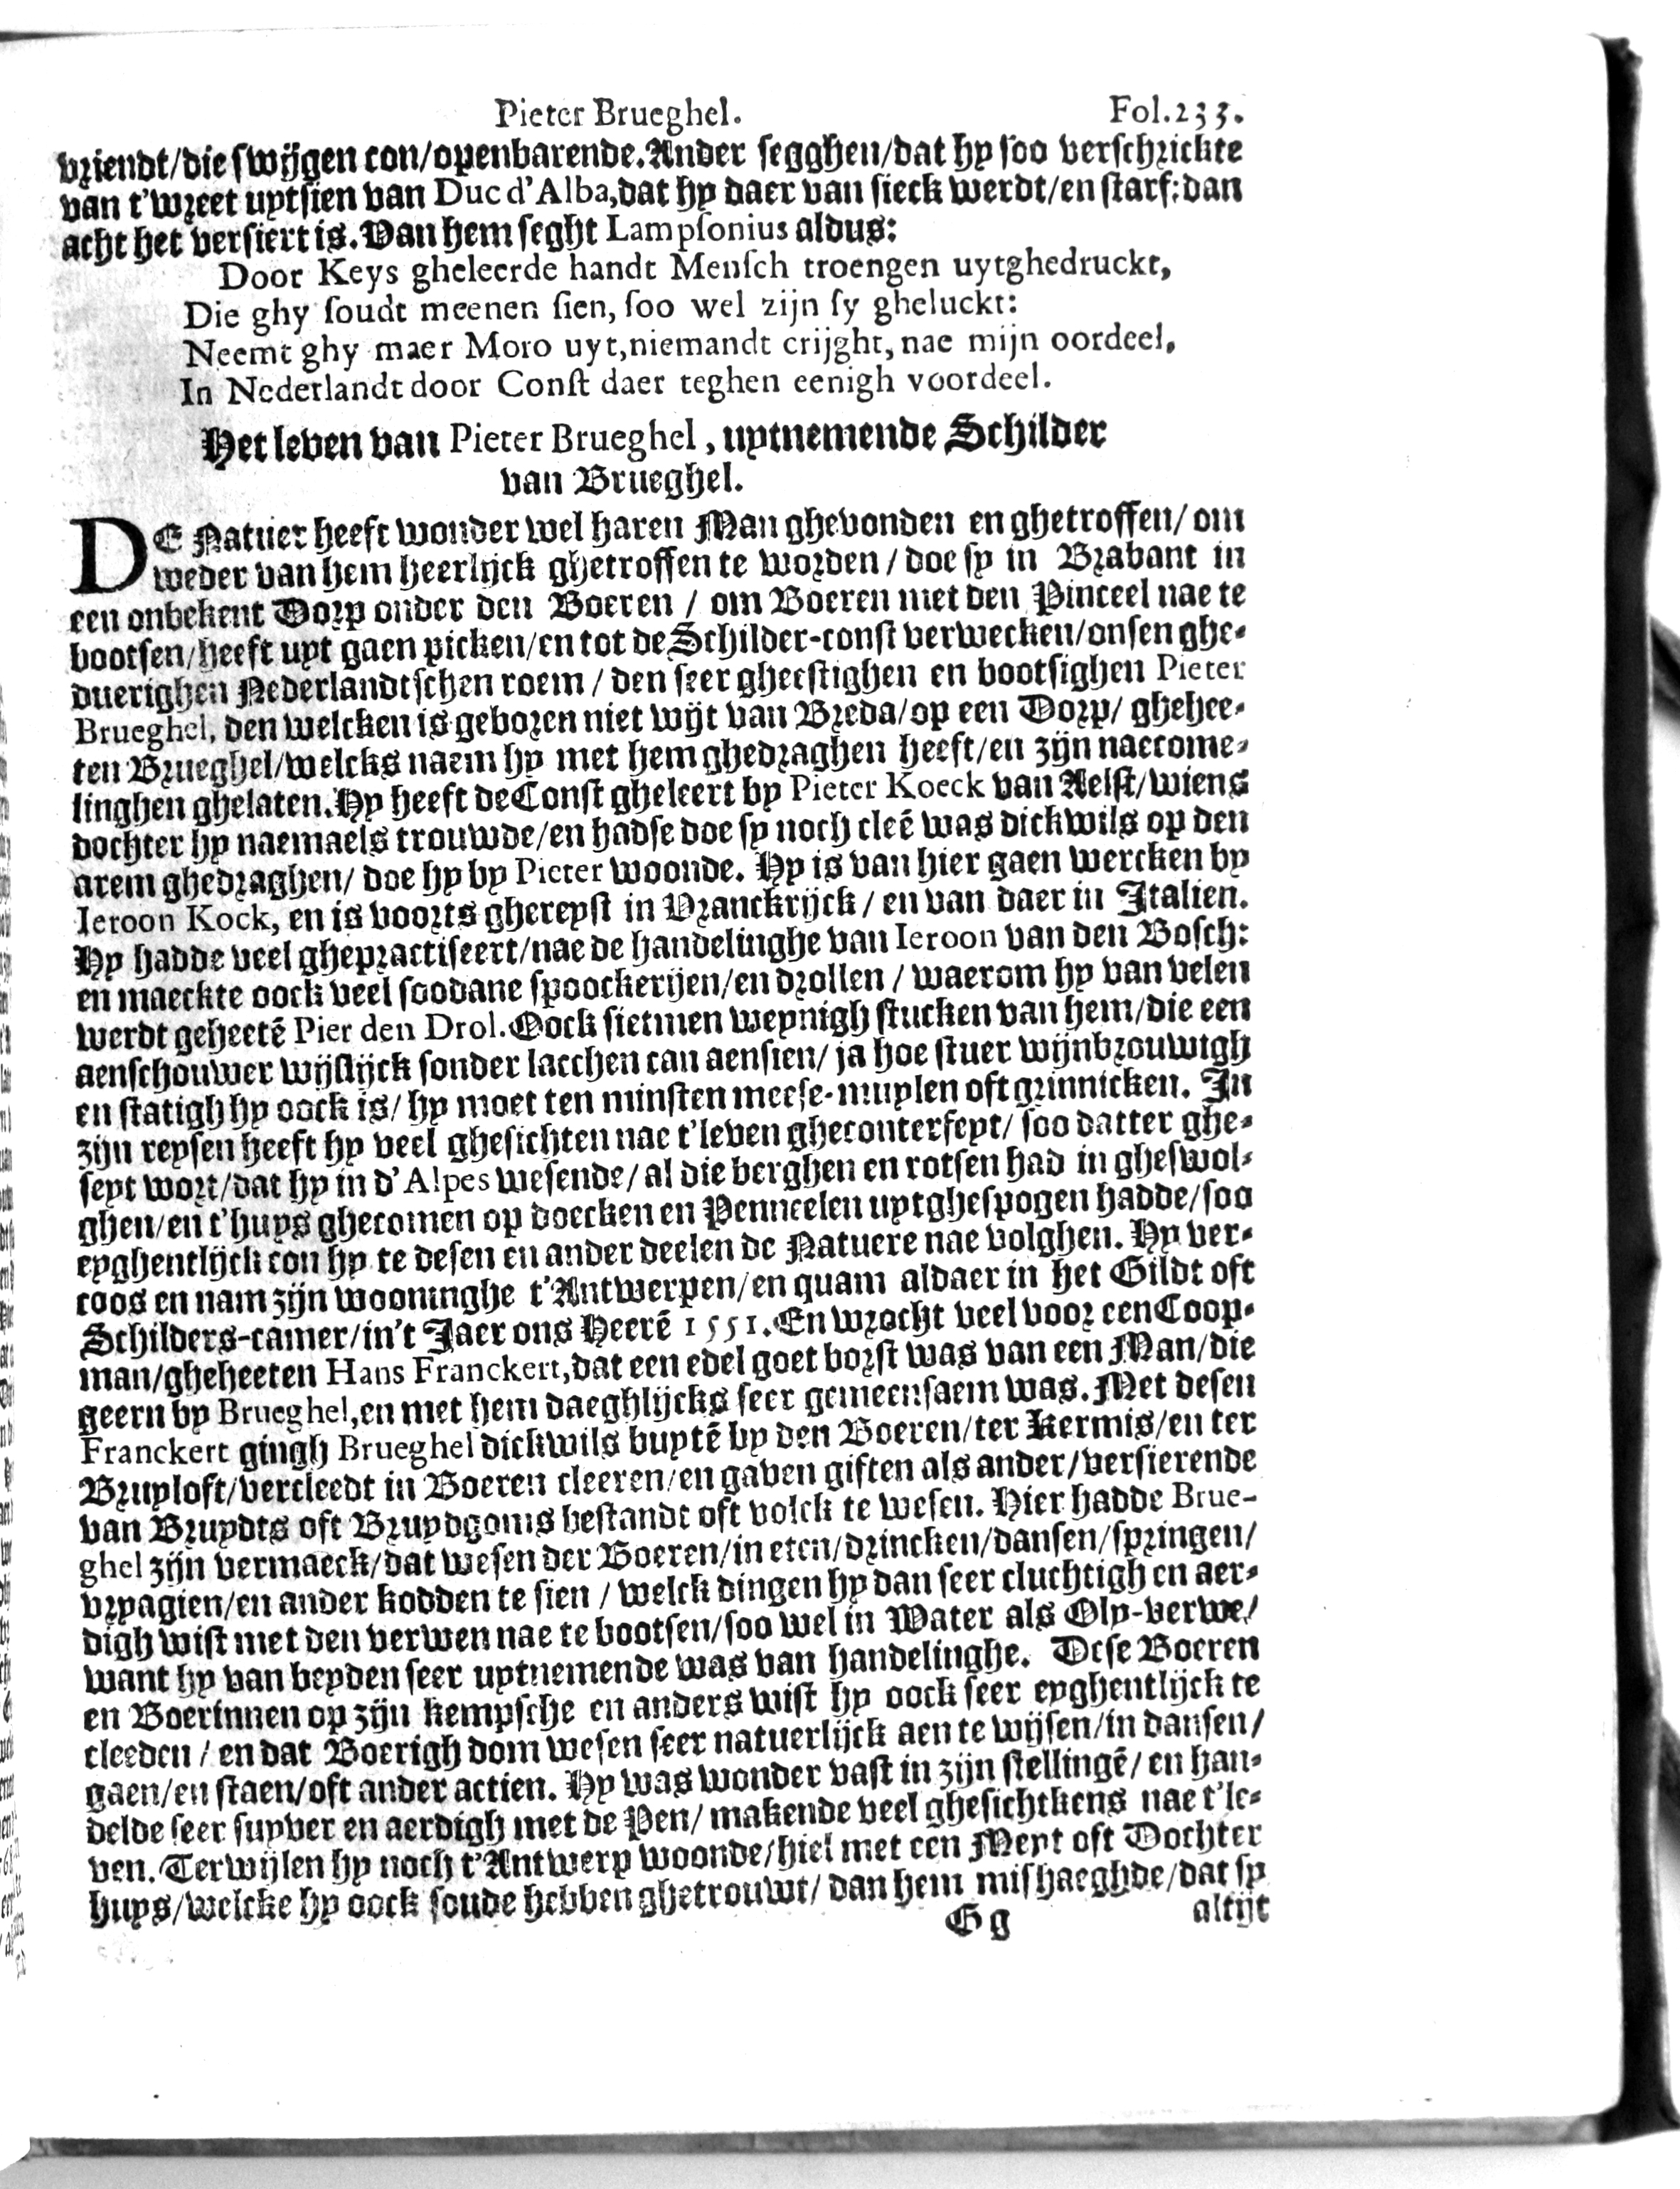 Pieter Brueghel. Fol.233.
vriendt/die swijgen con/openbarende. Ander segghen/dat hy soo verschrickte
van t'wreet uytsien van Duc d'Alba, dat hy daer van sieck werdt/en starf: dan
acht het versiert is. Van hem seght Lampsonius aldus:
Door Keys gheleerde handt Mensch troengen uytghedruckt,
Die ghy soudt meenen sien, soo wel zijn sy gheluckt:
Neemt ghy maer Moro uyt, niemandt crijght, nae mijn oordeel,
In Nederlandt door Const daer teghen eenigh voordeel.
Het leven van Pieter Brueghel, uytnemende Schilder
van Brueghel.
DE Natuer heeft wonder wel haren Man ghevonden en ghetroffen/ om
weder van hem heerlijck ghetroffen te worden/ doe sy in Brabant in
een onbekent Dorp onder den Boeren/ om Boeren met den Pinceel nae te
bootsen/heeft uyt gaen picken/en tot de Schilder-const verwecken/onsen ghe-
duerighen Nederlandtschen roem/ den seer gheestighen en bootsighen Pieter
Brueghel, den welcken is geboren niet wijt van Breda/op een Dorp/ ghehee-
ten Brueghel/welcks naem hy met hem ghedraghen heeft/en zijn naecome-
linghen ghelaten. Hy heeft de Const gheleert by Pieter Koeck van Aelst/wiens
dochter hy naemaels trouwde/en hadse doe sy noch cleē was dickwils op den
arem ghedraghen/ doe hy by Pieter woonde. Hy is van hier gaen wercken by
Ieroon Kock, en is voorts ghereyst in Vranckrijck/ en van daer in Italien.
Hy hadde veel ghepractiseert/nae de handelinghe van Ieroon van den Bosch:
en maeckte oock veel soodane spoockerijen/en drollen/ waerom hy van velen
werdt geheetē Pier den Drol. Oock sietmen weynigh stucken van hem/die een
aenschouwer wijslijck sonder lacchen can aensien/ ja hoe stuer wijnbrouwigh
en statigh hy oock is/ hy moet ten minsten meese-muylen oft grinnicken. In
zijn reysen heeft hy veel ghesichten nae t'leven gheconterfeyt/ soo datter ghe-
seyt wort/dat hy in d'Alpes wesende/ al die berghen en rotsen had in gheswol-
ghen/en t'huys ghecomen op doecken en Penneelen uytghespogen hadde/soo
eyghentlijck con hy te desen en ander deelen de Natuere nae volghen. Hy ver-
coos en nam zijn wooninghe t'Antwerpen/en quam aldaer in het Gildt oft
Schilders-camer/in't Jaer ons Heerē 1551. En wrocht veel voor een Coop-
man/gheheeten Hans Franckert, dat een edel goet borst was van een Man/die
geern by Brueghel, en met hem daeghlijcks seer gemeensaem was. Met desen
Franckert gingh Brueghel dickwils buytē by den Boeren/ter kermis/en ter
Bruyloft/vercleedt in Boeren cleeren/en gaven giften als ander/versierende
van Bruydts oft Bruydgoms bestandt oft volck te wesen. Hier hadde Brue-
ghel zijn vermaeck/dat wesen der Boeren/in eten/drincken/dansen/springen/
vryagien/en ander kodden te sien/ welck dingen hy dan seer cluchtigh en aer-
digh wist met den verwen nae te bootsen/soo wel in Water als Oly-verwe/
want hy van beyden seer uytnemende was van handelinghe. Dese Boeren
en Boerinnen op zijn kempsche en anders wist hy oock seer eyghentlijck te
cleeden/ en dat Boerigh dom wesen seer natuerlijck aen te wijsen/in dansen/
gaen/en staen/oft ander actien. Hy was wonder vast in zijn stellingē/ en han-
delde seer suyver en aerdigh met de Pen/ makende veel ghesichtkens nae t'le-
ven. Terwijlen hy noch t'Antwerp woonde/hiel met een Meyt oft Dochter
huys/welcke hy oock soude hebben ghetrouwt/ dan hem mishaeghde/dat sy
Gg altijt